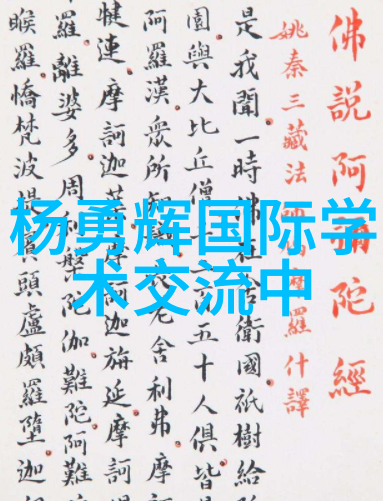 佛說阿彌陀經
姚秦三藏法師鳩摩羅什譯
是我聞一時佛在舍衛國祇樹給
園與大比丘僧千二百五十人俱皆
阿羅漢眾所知識長老舍利弗摩
犍連摩訶迦葉摩訶迦旃延摩訶
羅離婆多周利槃陀伽難陀阿難
睺羅憍梵波提賓頭盧頗羅墮迦
杨勇辉国际学
术交流中